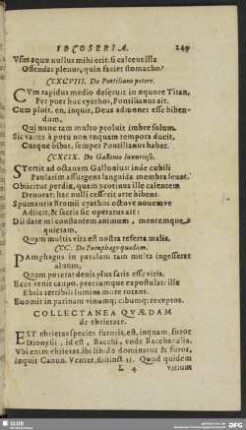 IOCOSERIA. 249
Offendat plenus, quin faciet stomacho?
CCXCVIII. De Pontiliano potore.
CVm rapidus medio deseruit in æquore Titan,
Per puer huc cyathos, Pontilianus ait.
Cum pluit. en, inquit, Deus admonet esse bibendam,
Qui nunc tam multo proluit imbre solum.
Sic varias à potu non vnquam tempora ducit,
Cuique bibat, semper Pontilianus habet.
CCXCIX. De Gallonio luxurioso.
STertit ad octauam Gallonius: inde cubili
Paulatim assurgens languida membra leuat.
Obiicitur perdix, quam protinus ille calentem
Deuorat: hac nulli cesserit arte bibens.
Spumantis Bromij cyathos octove nouemve
Adiicit, & factis sic operatus ait:
Dii date mi constantem animum, mentemque
quietam,
Quam multis vita est nostra referta malis.
CCC. De Pamphago quodam.
PAmphagus in patulam tam multa ingesserat
aluum,
Quam poterat denis plus satis esse viris.
Ecce venit caupo. preciumque expostulat: ille
Ebria terribili lumina more rotans.
Euomit in patinam vinumq; cibumq; receptos.
COLLECTANEA QVÆDAM
de ebrietate.
EST ebrietas species furoris, est, inquam, furor
Dionysii, id est, Bacchi, vnde Bacchanalia.
Vbi enim ebrietas, ibi libido dominatur & furor,
inquit Canon. Venter, distinct.
L 4 vitium